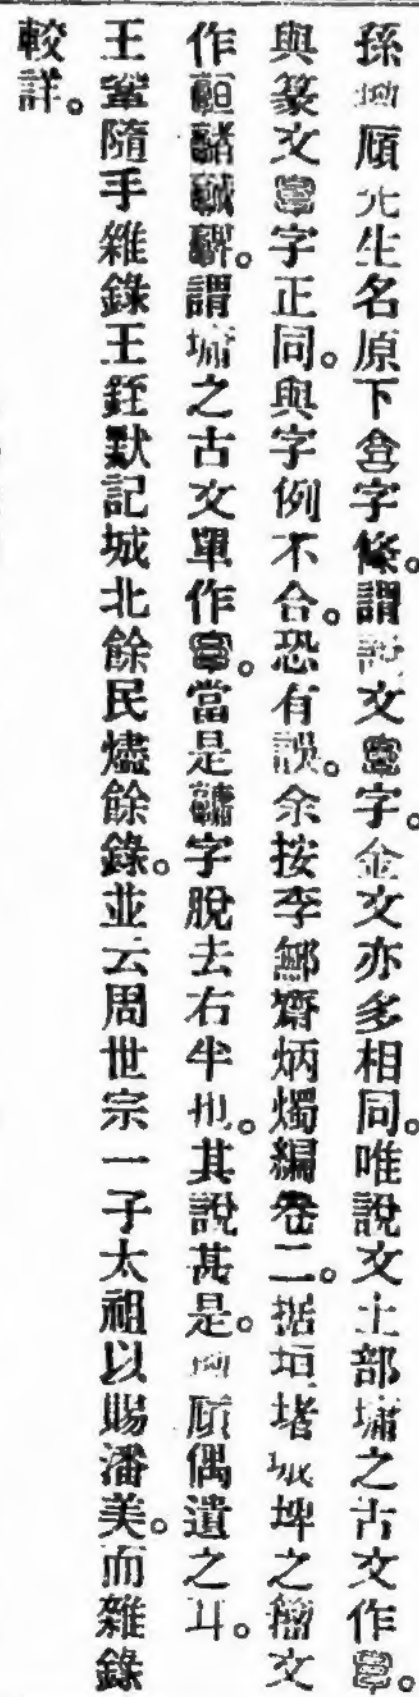 孫籀廎先生名原下字條。謂說文𩫏字。金文亦多相同。唯說文土部墉之古文作𩫏。
與篆文𩫏字正同。與字例不合。恐有誤。余按李鄦齋炳燭編卷二。据垣堵城埤之籀文
作。謂墉之古文單作𩫏。當是字脫去右半也。其說甚是。籀廎偶遺之耳。
王鞏隨手雜錄王銍默記城北餘民燼餘錄。並云周世宗一子太祖以賜潘美。而雜錄
較詳。